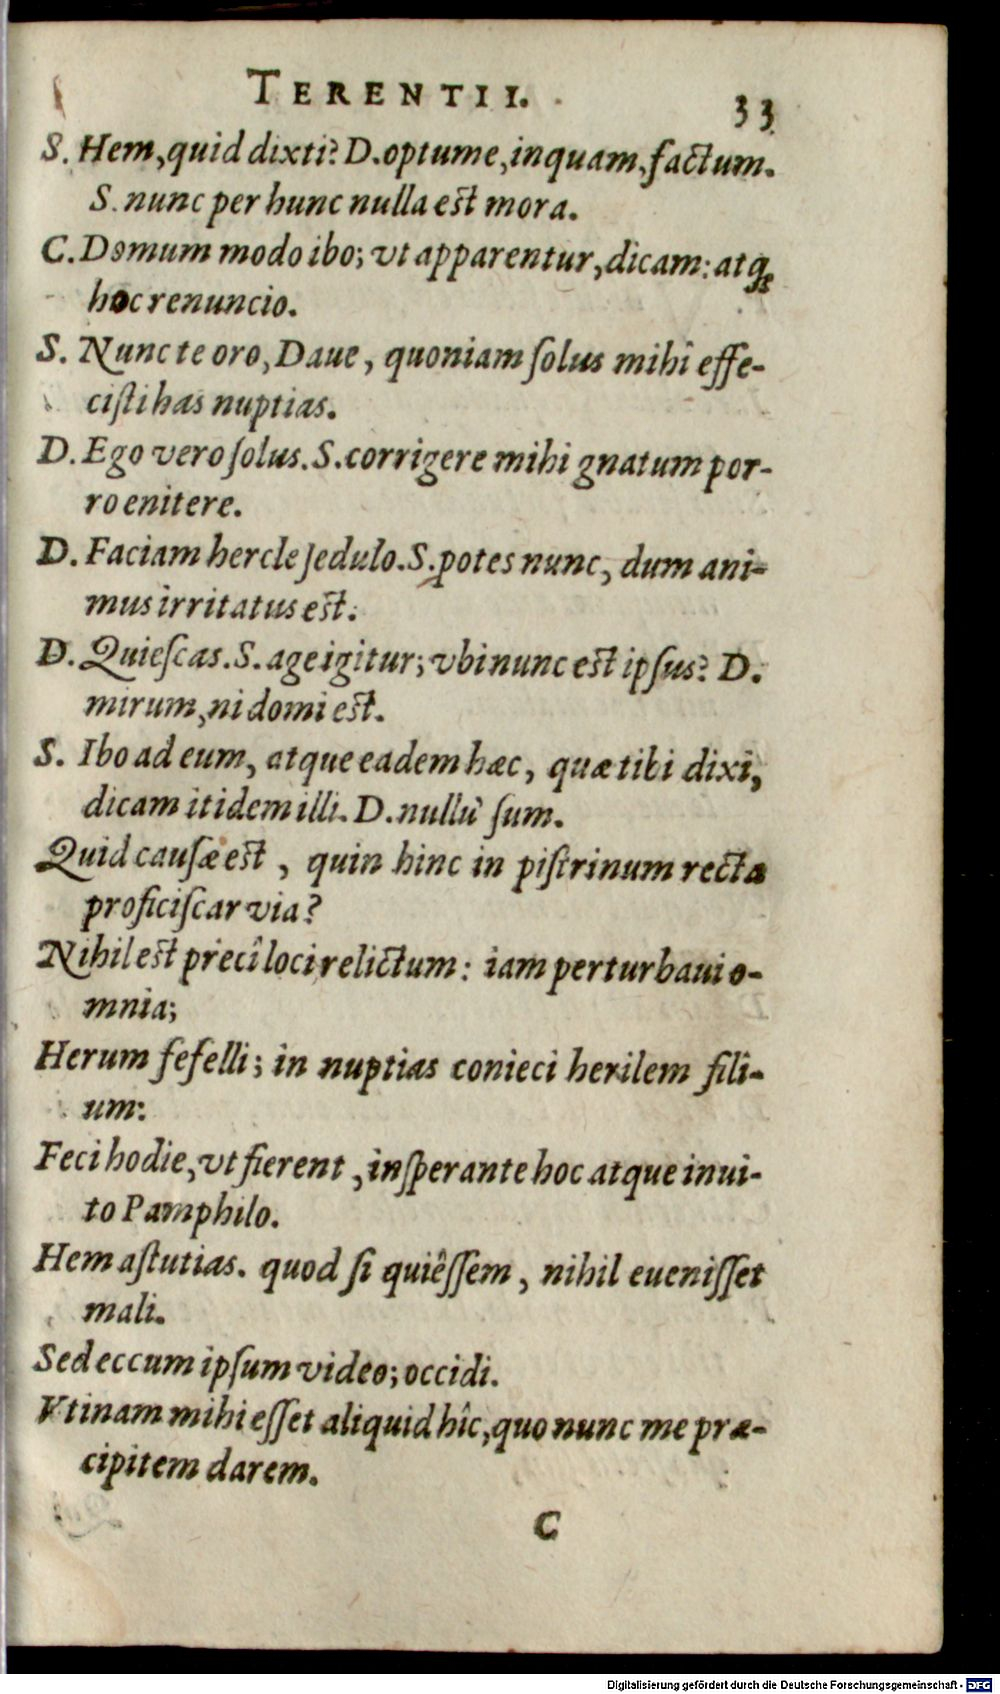 TERENTII.
33
S. Hem, quid dixti? D. optume, inquam, factum.
S. nunc per hunc nulla est mora.
C. Domum modo ibo; vt apparentur, dicam: atq̃
hoc renuncio.
S. Nunc te oro, Daue, quoniam ſolus mihî effe-
ciſti has nuptias.
D. Ego vero ſolus. S. corrigere mihi gnatum por-
ro enitere.
D. Faciam hercle ſedulo. S. potes nunc, dum ani-
mus irritatus est.
D. Quieſcas. S. age igitur; vbi nunc est ipſus? D.
mirum, ni domi est.
S. Ibo ad eum, atque eadem hæc, quæ tibi dixi,
dicam itidem illi. D. nullũ ſum.
Quid cauſæ est, quin hinc in piſtrinum recta
proficiſcar via?
Nihil est precî loci relictum: iam perturbaui o-
mnia;
Herum fefelli; in nuptias conieci herilem fili-
um:
Feci hodie, vt fierent, inſperante hoc atque inui-
to Pamphilo.
Hem aſtutias. quod ſi quiêſſem, nihil eueniſſet
mali.
Sed eccum ipſum video; occidi.
Vtinam mihi eſſet aliquid hîc, quo nunc me præ-
cipitem darem.
C
Digitalisierung gefördert durch die Deutsche Forschungsgemeinschaft - DFG